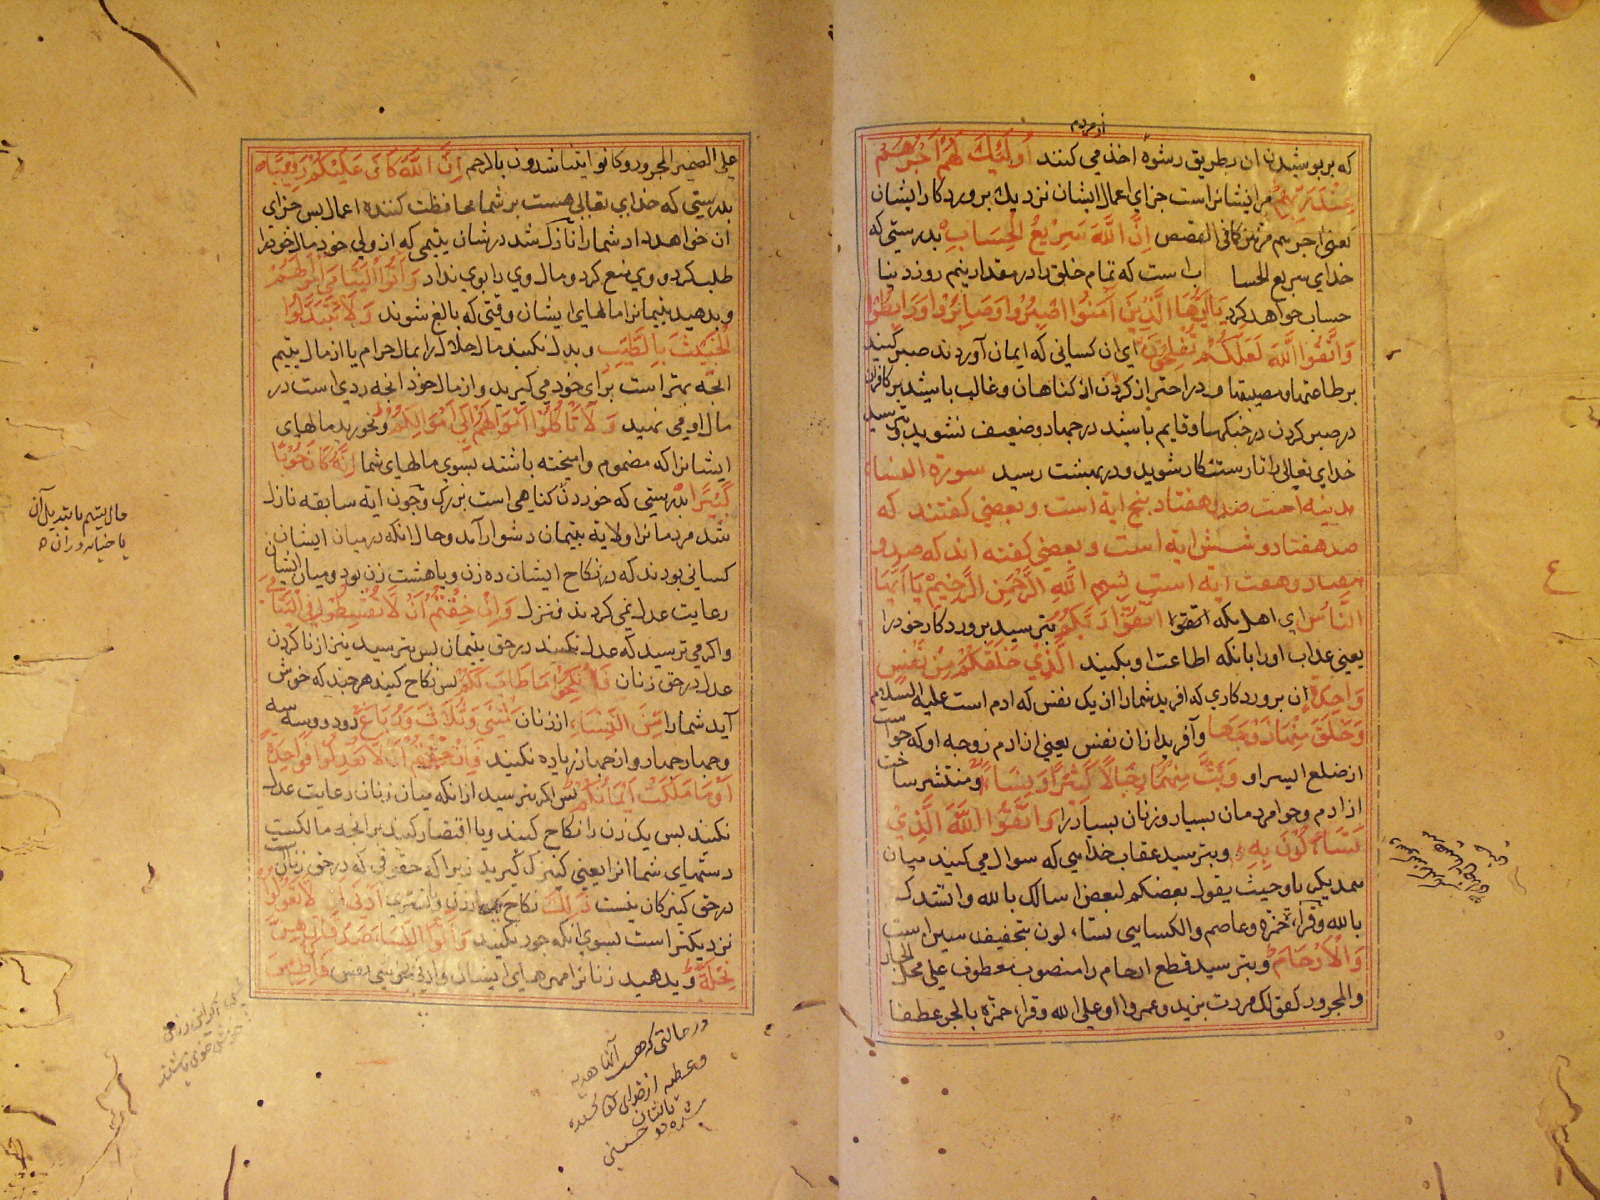 از مردم
که بر پوشیدن ان بطریق رشوه اخذ می کنند أُولَٰئِكَ لَهُمْ أَجْرُهُمْ
عِنْدَ رَبِّهِمْ مرایشانراست جزای اعمال ایشان نزدیك پروردکار ایشان
یعنی اجرهم مرتین کما فی القصص إِنَّ اللَّهَ سَرِيعُ الْحِسَابِ بدرستی که
خدای سریع الحسا ب است که تمام خلق را در مقدار نیم روز دنیا
حساب خواهد کرد يَا أَيُّهَا الَّذِينَ آمَنُوا اصْبِرُوا وَصَابِرُوا وَرَابِطُوا
وَاتَّقُوا اللَّهَ لَعَلَّكُمْ تُفْلِحُونَ ای ان کسانی که ایمان آوردند صبر کنید
بر طاعتها و مصیبتها و در احتراز کردن از کناهان و غالب باشید بر کافران
در صبر کردن در جنکها و قایم باشید در جهاد و ضعیف نشوید و بترسید
خدای تعالی را تا رستکار شوید و در بهشت رسید سورة النساء
مدینه است صد و هفتاد پنج ایه است و بعضی کفتند که
صد هفتاد و شش ایه است و بعضی کفته اند که صد و
هفتاد و هفت ایه است بِسْمِ اللَّهِ الرَّحْمَٰنِ الرَّحِيمِ يَا أَيُّهَا
النَّاسُ ای اهل مکه اتَّقُوا رَبَّكُمُ بترسید پروردکار خود را
یعنی عذاب او را بانکه اطاعت او بکنید الَّذِي خَلَقَكُمْ مِنْ نَفْسٍ
وَاحِدَةٍ ان پروردکاری که افرید شمارا از یک نفس که ادم است علیه السلام
وَخَلَقَ مِنْهَا زَوْجَهَا وآفرید ازان نفس یعنی از ادم زوجه او که حواست
از ضلع الیسر او وَبَثَّ مِنْهُمَا رِجَالًا كَثِيرًا وَنِسَاءً و منتشر ساخت
از ادم و حوا مردمان بسیار و زنان بسیار را وَاتَّقُوا اللَّهَ الَّذِي
تَسَاءَلُونَ بِهِ و بترسید عقاب خدایی که سوال می کنید میان
همدیکر باو حیث یقول بعضکم لبعض اسالک بالله وانشدک
بالله وقرا حمزه وعاصم والکسایی تساءلون بتخفیف سین است
وَالْأَرْحَامَ و بترسید قطع ارحام را منصوب معطوف علی محل الجار
والمجرور کقولک مررت بزید وعمروا او علی الله وقرا حمزة بالجر عطفا
علی الضمیر المجرور وکانوا یتناشدون بالرحم إِنَّ اللَّهَ كَانَ عَلَيْكُمْ رَقِيبًا
بدرستی که خدای تعالی هست بر شما محافظت کننده اعمال پس جزای
ان خواهد داد شمارا نازل شد در شان یتیمی که از ولی خود مال خود را
طلب کرد و وی منع کرد و مال وی را بوی نداد وَآتُوا الْيَتَامَىٰ أَمْوَالَهُمْ
و بدهید یتیمانرا مالهای ایشان وقتی که بالغ شوند وَلَا تَتَبَدَّلُوا
الْخَبِيثَ بِالطَّيِّبِ و بدل نکنید مال حلال را بمال حرام یا از مال یتیم
انچه بهتر است برای خود می کیرید و از مال خود انچه ردی است در
مال او می نهید وَلَا تَأْكُلُوا أَمْوَالَهُمْ إِلَىٰ أَمْوَالِكُمْ و نخورید مالهای
ایشانرا که مضموم وامیخته باشند بسوی مالهای شما إِنَّهُ كَانَ حُوبًا
كَبِيرًا بدرستی که خوردن کناهی است بزرک و چون ایه سابقه نازل
شد مردمانرا ولایة یتیمان دشوار آمد و حال انکه در میان ایشان
کسانی بودند که در نکاح ایشان ده زن و یا هشت زن بود و میان ایشان
رعایت عدل نمی کردند فنزل وَإِنْ خِفْتُمْ أَلَّا تُقْسِطُوا فِي الْيَتَامَىٰ
واکر می ترسید که عدل نکنید در حق یتیمان پس بترسید نیز از نا کردن
عدل در حق زنان فَانْكِحُوا مَا طَابَ لَكُمْ پس نکاح کنید هر چند که خوش
آید شمارا مِنَ النِّسَاءِ از زنان مَثْنَىٰ وَثُلَاثَ وَرُبَاعَ دو دو و سه سه
و چهار چهار و از چهار زیاده نکنید فَإِنْ خِفْتُمْ أَلَّا تَعْدِلُوا فَوَاحِدَةً
أَوْ مَا مَلَكَتْ أَيْمَانُكُمْ پس اکر بترسید از انکه میان زنان رعایت عدل
نکنید پس یک زن را نکاح کنید و یا اقتصار کنید بر انچه مالکست
دستهای شما انرا یعنی کنیزک کیرید زیرا که حقوقی که در حق زنان
در حق کنیزکان نیست ذَٰلِكَ نکاح أَدْنَىٰ أَلَّا تَعُولُوا
نزدیکتر است بسوی انکه جور نکنید وَآتُوا النِّسَاءَ صَدُقَاتِهِنَّ
نِحْلَةً و بدهید زنانرا مهرهای ایشان فَإِنْ طِبْنَ
مال یتیم یا تبدیل آن
یا خیانه در ان
در حالتی که هست آنها هدیه
و عطیه از خدای
بایشان
حسینی
ع